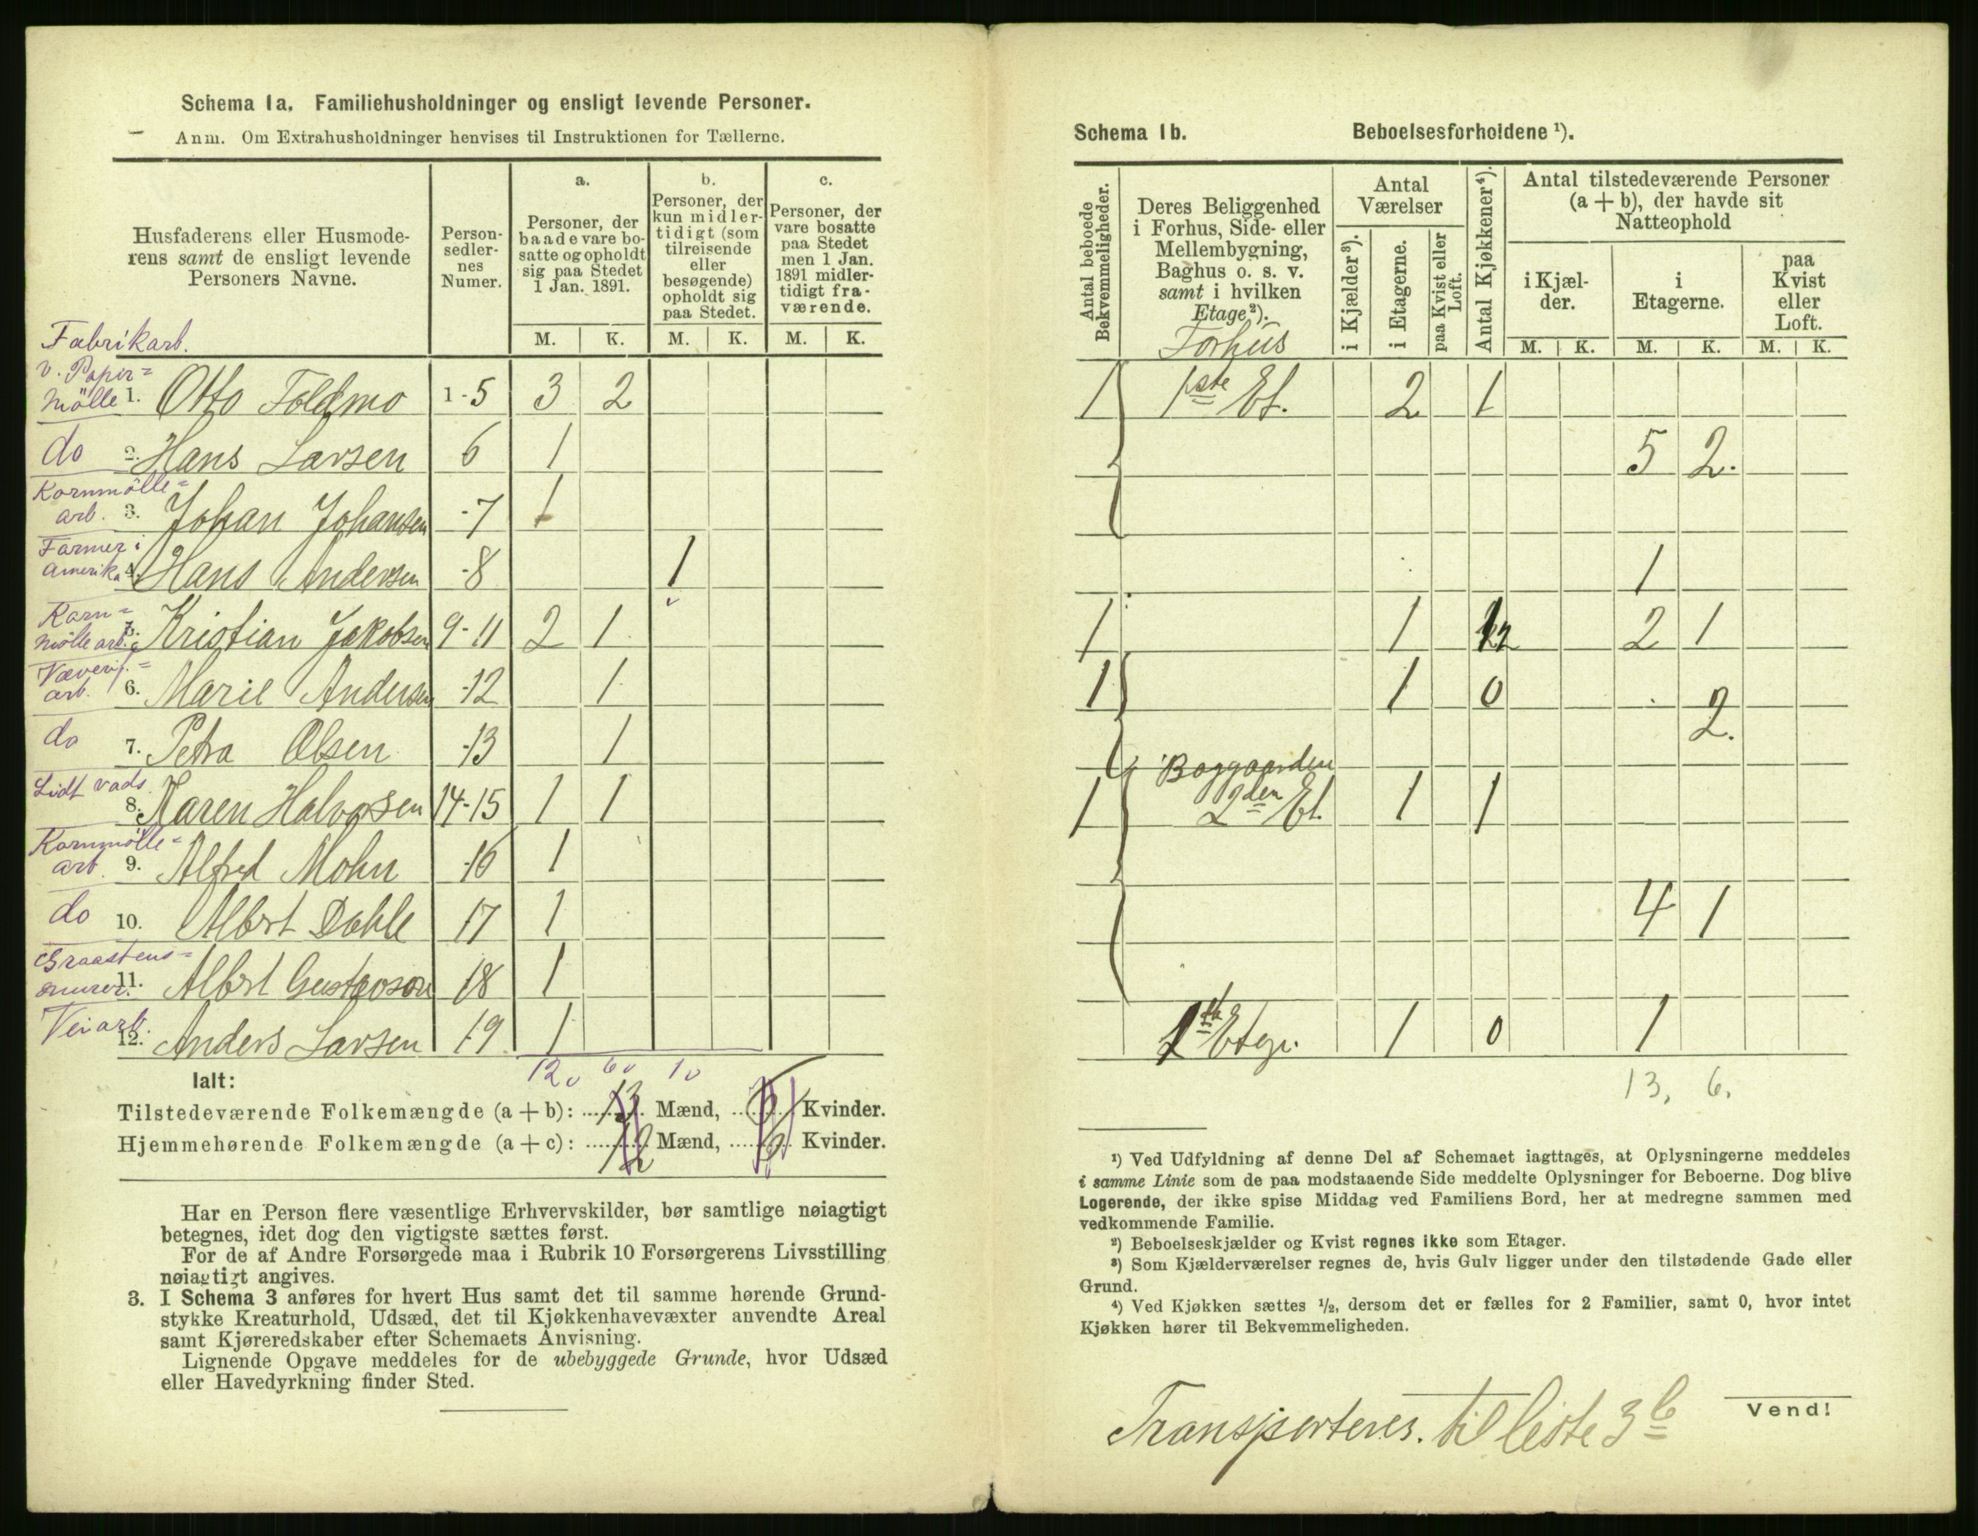 Schema 1a. Familiehusholdninger og ensligt levende Personer.
Anm. Om Extrahusholdninger henvises til Instruktionen for Tællerne.
Husfaderens eller Husmode-
rens samt de ensligt levende
Personers Navne.
Person-
sedler-
nes
Numer.
a.
Personer, der
baade vare bo-
satte og opholdt
sig paa Stedet
1 Jan. 1891.
b.
Personer, der
kun midler-
tidigt (som
tilreisende
eller
besøgende)
opholdt sig
paa Stedet.
c.
Personer, der
vare bosatte
paa Stedet
men 1 Jan.
1891 midler-
tidigt fra-
værende.
M. K. M. K. M. K.
Fabrikarb.
v. Papir=
mölle 1. Otto Foldmo 1-5 3 2
do 2. Hans Larsen 6 1
Kornmölle=
arb. 3. Johan Johansen -7 1
Farmer i
Amerika 4. Hans Andersen -8 1
Korn=
mölle arb. 5. Kristian Jakobsen 9-11 2 1
Væveri=
arb. 6. Marie Andersen -12 1
do 7. Petra Olsen -13 1
Lidt vads.
8. Karen Halvorsen 14-15 1 1
Kornmölle=
arb. 9. Alfred Mohn -16 1
do 10. Albert Dahle 17 1
Graastens=
murer. 11. Albert Gustavson 18 1
Veiarb. 12. Anders Larsen 19 1
12 6 1
Ialt:
Tilstedeværende Folkemængde (a + b): 13 Mænd, 6 Kvinder.
Hjemmehørende Folkemængde (a + c): 12 Mænd, 6 Kvinder.
Har en Person flere væsentlige Erhvervskilder, bør samtlige nøiagtigt
betegnes, idet dog den vigtigste sættes først.
For de af Andre Forsørgede maa i Rubrik 10 Forsørgerens Livsstilling
nøiagtigt angives.
3. I Schema 3 anføres for hvert Hus samt det til samme hørende Grund-
stykke Kreaturhold, Udsæd, det til Kjøkkenhavevæxter anvendte Areal
samt Kjøreredskaber efter Schemaets Anvisning.
Lignende Opgave meddeles for de ubebyggede Grunde, hvor Udsæd
eller Havedyrkning finder Sted.
Schema 1b. Beboelsesforholdene ¹).
Antal beboede
Bekvemmeligheder.
Deres Beliggenhed
i Forhus, Side- eller
Mellembygning,
Baghus o. s. v.
samt i hvilken
Etage²).
Antal
Værelser
i Kjælder³).
i Etagerne.
paa Kvist eller
Loft.
Antal Kjøkkener⁴).
Antal tilstedeværende Personer
(a + b), der havde sit
Natteophold
i Kjæl-
der.
i
Etagerne.
paa
Kvist
eller
Loft.
M. K. M. K. M. K.
Forhus
1 1ste Et. 2 1
5 2.
1
1 1 2 1
1 1 0
2.
Baggaarden
1 2den Et. 1 1
4 1
Etge. 1 0 1
13, 6.
¹) Ved Udfyldning af denne Del af Schemaet iagttages, at Oplysningerne meddeles
i samme Linie som de paa modstaaende Side meddelte Oplysninger for Beboerne. Dog blive
Logerende, der ikke spise Middag ved Familiens Bord, her at medregne sammen med
vedkommende Familie.
²) Beboelseskjælder og Kvist regnes ikke som Etager.
³) Som Kjælderværelser regnes de, hvis Gulv ligger under den tilstødende Gade eller
Grund.
⁴) Ved Kjøkken sættes ½, dersom det er fælles for 2 Familier, samt 0, hvor intet
Kjøkken hører til Bekvemmeligheden.
Vend!
Transporteres. til liste 3 b